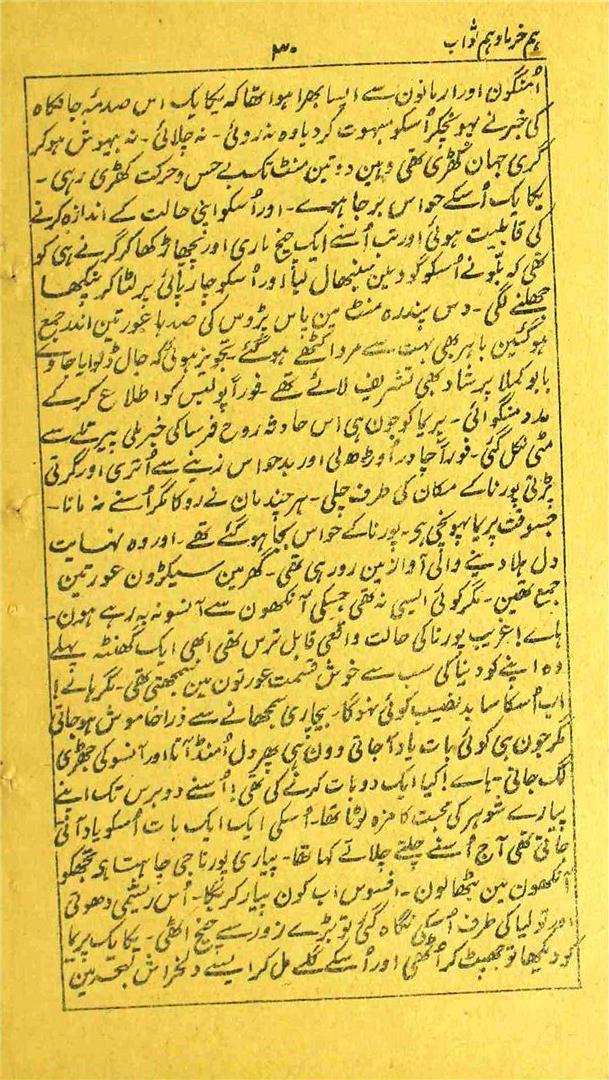 ہم خرما و ہم ثواب
۳۰
اُمنگون اور ارمانون سے ایسا بھرا ہوا تھا کہ یکایک اس صدمۂ جانکاہ
کی خبر نے پہونچکر اُسکو مبہوت کر دیا وہ نہ روئی ۔ نہ چلائی ۔ نہ بیہوش ہوکر
گری جہان کھڑی تھی وہین دو تین منٹ تک بے حس و حرکت کھڑی رہی ۔
یکایک اُسکے حواس بر جا ہوے ۔ اور اُسکو اپنی حالت کے اندازہ کرنے
کی قابلیت ہوئی اور تب اُسنے ایک چیخ ماری اور پچھاڑ کھا کر گرنے ہی کو
تھی کہ بلّو نے اُسکو گود مین سنبھال لیا اور اُسکو چارپائی پر لٹا کر پنکھا
جھلنے لگی ۔ دس پندرہ منٹ مین پاس پڑوس کی صدہا عورتین اندر جمع
ہوگئین باہر بھی بہت سے مرد اکٹھے ہوگئے ۔ تجویز ہوئی کہ جال ڈلوایا جاوے
بابو کملا پرشاد بھی تشریف لائے تھے ۔ فوراً پولیس کو اطلاع کرکے
مدد منگوائی ۔ پریما کو جون ہی اس حادثہ روح فرسا کی خبر ملی پیر تلے سے
مٹی نکل گئی ۔ فوراً چادر اُوڑھ لی اور بدحواس زینے سے اُتری اور گرتی
پڑتی پورنا کے مکان کی طرف چلی ۔ ہرچند مان نے روکا مگر اُسنے نہ مانا ۔
جسوقت پریما پہونچی ہے ۔ پورنا کے حواس بجا ہوگئے تھے ۔ اور وہ نہایت
دل ہلا دینے والی آواز مین رو رہی تھی ۔ گھر مین سیکڑون عورتین
جمع تھین ۔ مگر کوئی ایسی نہ تھی جسکی آنکھون سے آنسو نہ بہہ رہے ہون ۔
ہاے! غریب پورنا کی حالت واقعی قابل ترس تھی ابھی ایک گھنٹہ پہلے
وہ اپنے کو دنیا کی سب سے خوش قسمت عورتون مین سمجھتی تھی ۔ مگر ہاے!
اب اُسکا سا بدنصیب کوئی نہوگا ۔ بیچاری سمجھانے سے ذرا خاموش ہوجاتی
مگر جون ہی کوئی بات یاد آجاتی وون ہی پھر دل اُمنڈ آتا اور آنسو کی جھڑی
لگ جاتی ۔ ہاے! کیا ایک دو بات کرنے کی تھی! اُسنے دو برس تک اپنے
پیارے شوہر کی محبت کا مزہ لوٹا تھا ۔ اُسکی ایک ایک بات اُسکو یاد آتی
جاتی تھی آج اُسنے چلتے چلاتے کہا تھا ۔ پیاری پورنا جی چاہتا ہے تجھکو
آنکھون مین بٹھا لون ۔ افسوس اب کون پیار کریگا ۔ اُس ریشمی دھوتی
اور تولیا کی طرف اُسکی نگاہ گئی تو بڑے زور سے چیخ اُٹھی ۔ یکایک پریما
کو دیکھا تو جھپٹ کر اُٹھی اور اُسکے گلے مل کر ایسے دلخراش لہجہ مین